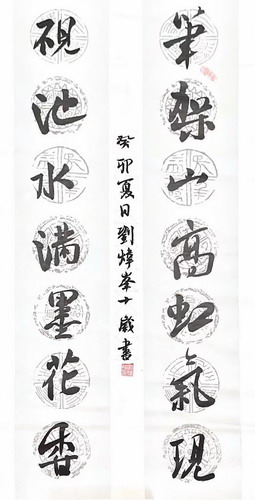 筆架山高虹氣現
硯池水滿墨花香
癸卯夏日劉煒峯十歲書